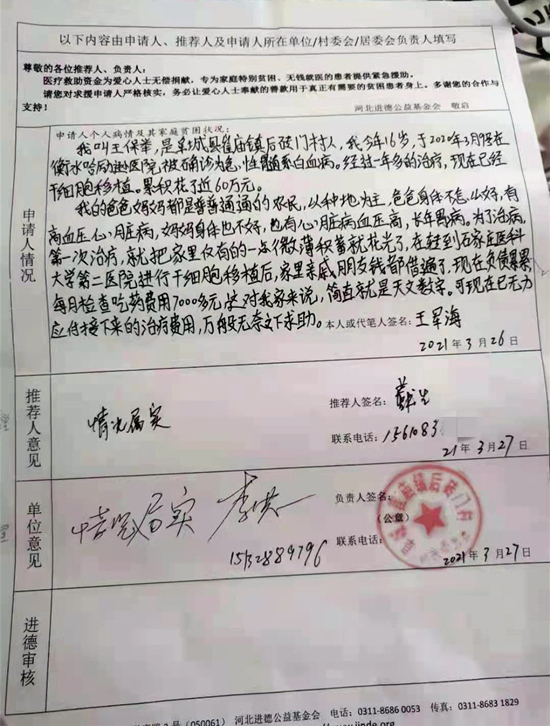 以下内容由申请人、推荐人及申请人所在单位/村委会/居委会负责人填写
尊敬的各位推荐人、负责人:
医疗救助资金为爱心人士无偿捐献,专为家庭特别贫困、无钱就医的患者提供紧急援助。
请您对求援申请人严格核实,务必让爱心人士奉献的善款用于真正有需要的贫困患者身上。多谢您的合作与
支持!
河北进德公益基金会 敬启
申请人情况
申请人个人病情及其家庭贫困状况:
我叫王保举,是阜城县崔庙镇后 门村人,我今年16岁,于2020年2月 在
衡水哈励逊医院,被确诊为急性髓系白血病。经过一年多的治疗,现在已经
干细胞移植。累积花了近60万元。
我的爸爸妈妈都是普普通通的农民,以种地为主,爸爸身体不怎么好,有
高血压心脏病,妈妈身体也不好,也有心脏病血压高,长年有病。为了治病,
第一次治疗,就把家里仅有的一点微薄积蓄就花光了,在转到石家庄医科
大学第二医院进行干细胞移植后,家里亲戚朋友钱都借遍了,现在负债累累
每月检查吃药费用7000多元,这对我家来说,简直就是天文数字。可现在已无力
应付接下来的治疗费用,万般无奈之下求助。
本人或代笔人签名: 王军海
2021年3月26日
推荐人意见
情况属实
推荐人签名:
联系电话:1561083
21年3月27日
单位意见
情况属实
15132889796
负责人签名:
(公章)
联系电话:
2021年3月27日
进德审核
(050061) 河北进德公益基金会 电话:0311-8686 0053 传真:0311-8683 1829